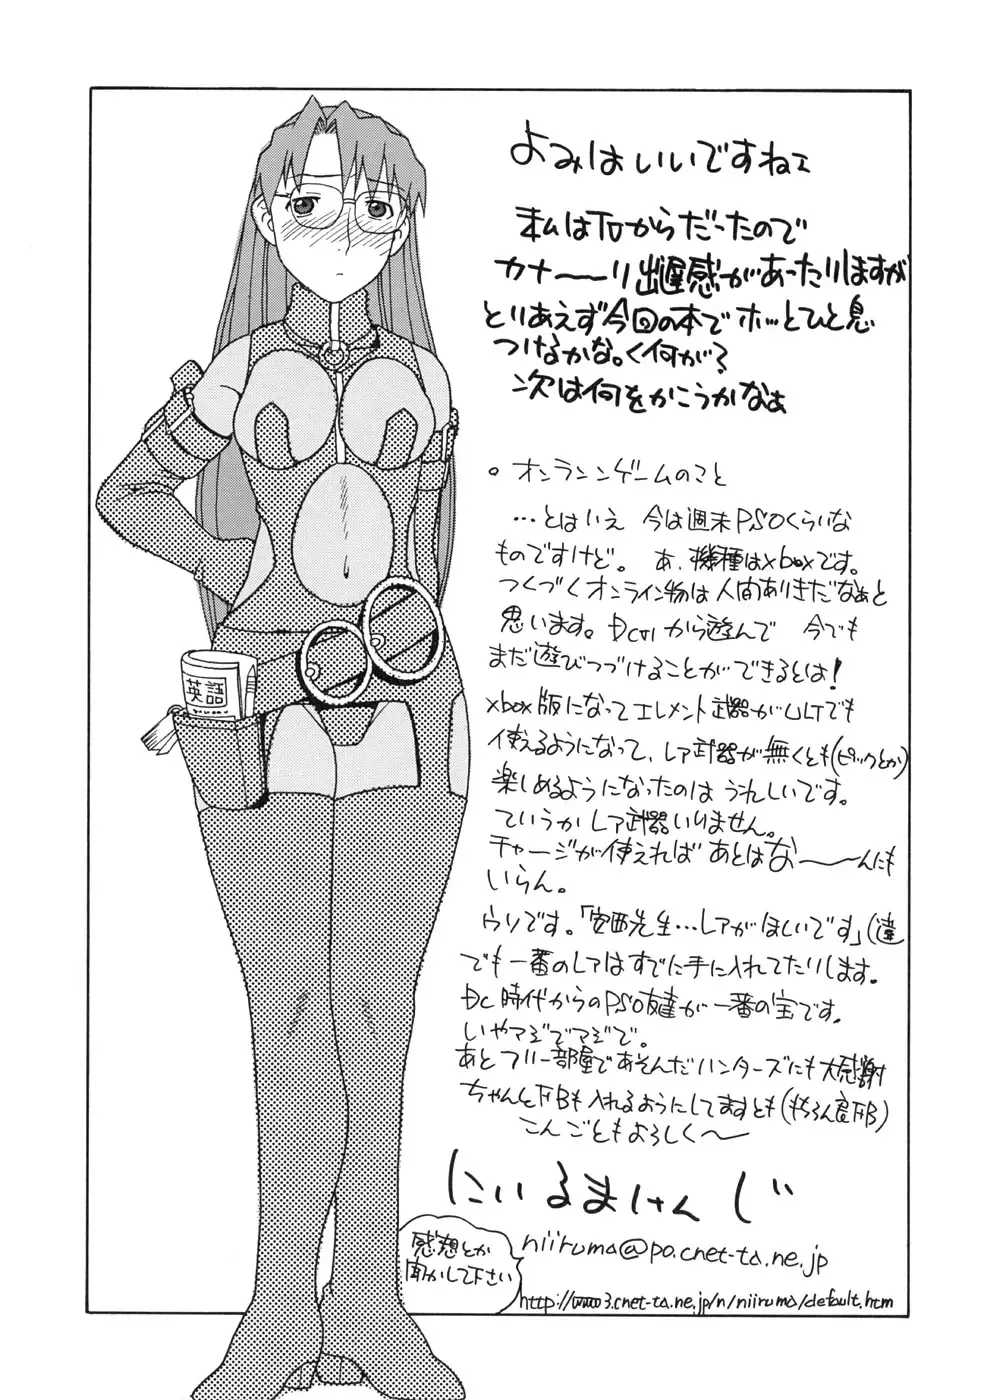 よみはいいですねェ
私はTVからだったので
カナ〜〜リ出遅感があったりしますが
とりあえず今回の本でホッとひと息
つけるかな。く何が?
次は何をかこうかなぁ
。オンランンゲームのこと
…とはいえ 今は週末PSOくらいな
ものですけど。 あ、機種はxboxです。
つくづくオンライン物は人間ありきだなぁと
思います。DCのから遊んで 今でも
まだ遊びつづけることができるとは!
xbox版になってエレメント武器がULTでも
使えるようになって、レア武器が無くとも(ピックとか)
楽しめるようになったのはうれしいです。
ていうかレア武器いりません。
チャージが使えればあとはな〜〜んにも
いらん。
ウソです。「安西先生…レアがほしいです」(違
でも一番のレアはすでに手に入れてたりします。
DC時代からのPSO友達が一番の宝です。
いやマジでマジで。
あとフリー部屋であそんだハンターズにも大感謝
ちゃんとFBも入れるようにしてますとも(もちろん度FB)
こんごともよろしく〜
にいるまけんじ
niiruma@po.cnet-ta.ne.jp
http://www3.cnet-ta.ne.jp/n/niiruma/default.htm
感想とか
聞かして下さい
英語